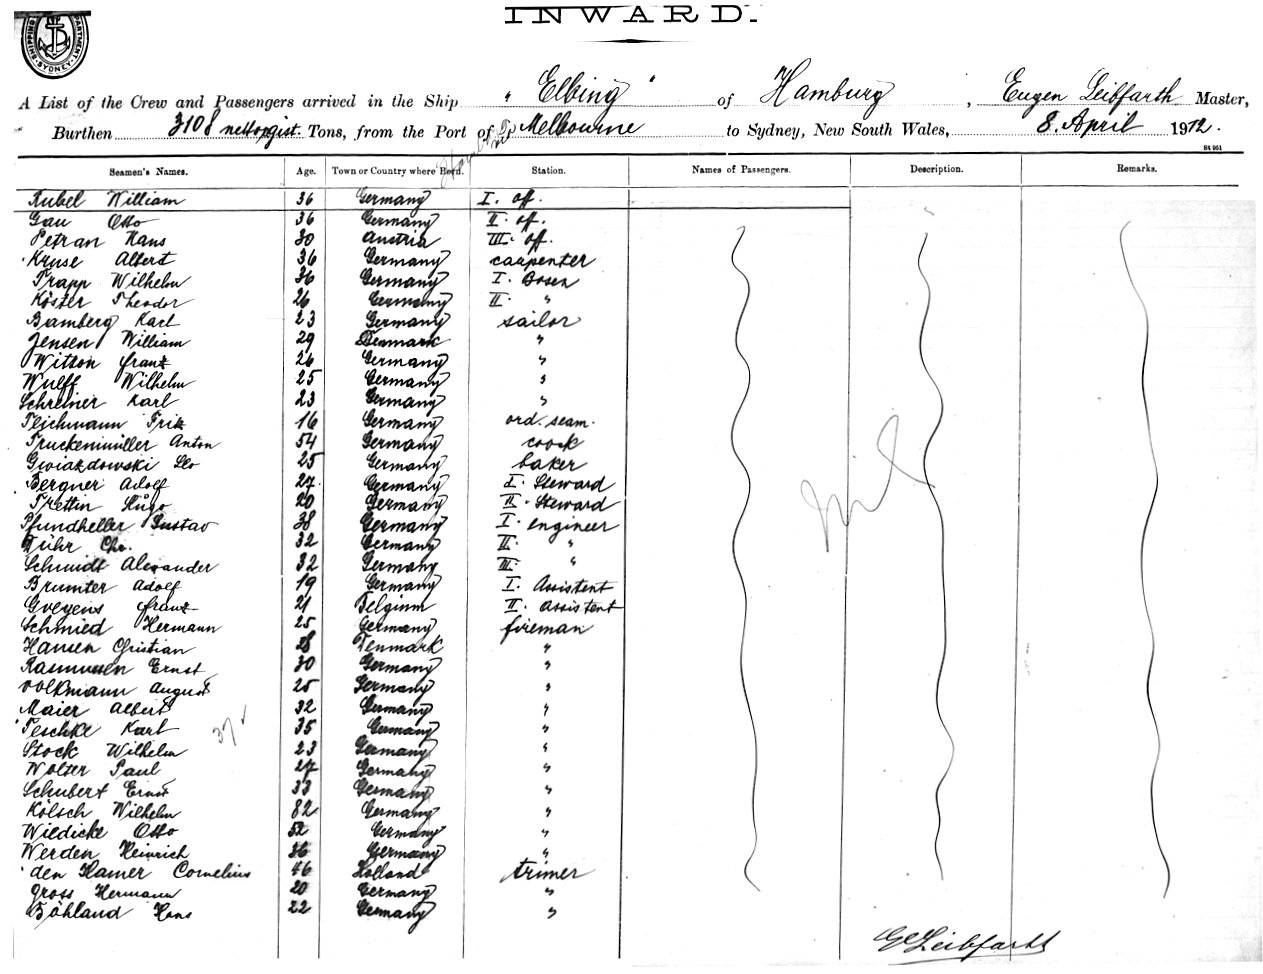 INWARD.
SHIPPING DEPARTMENT SYDNEY
A List of the Crew and Passengers arrived in the Ship "Elbing" of Hamburg, Eugen Leibfarth Master,
Burthen 3108 Tons, from the Port of Melbourne to Sydney, New South Wales, 8. April 1912.
Seamen's Names. Age. Town or Country where Born. Station. Names of Passengers. Description. Remarks.
Rubel William 36 Germany I. off.
Gau Otto 36 Germany II. off.
Petran Hans 30 Austria III. off.
Kruse Albert 36 Germany carpenter
Trapp Wilhelm 36 Germany I. Bosen
Köster Theodor 26 Germany II. "
Bamberg Karl 23 Germany sailor
Jensen William 29 Denmark "
Witton Franz 26 Germany "
Wulff Wilhelm 25 Germany "
Schreiner Karl 23 Germany "
Teichmann Fritz 16 Germany ord. seam.
Truckenmüller Anton 54 Germany coock
Gwiazdowski Leo 25 Germany baker
Bergner Adolf 27 Germany I. Steward
Trettin Hugo 20 Germany II. Steward
Pfundheller Gustav 38 Germany I. engineer
Führ Chr. 32 Germany II. "
Schmidt Alexander 32 Germany III. "
Brumter Adolf 19 Germany I. Assistent
Franz 21 Belginm II. Assistent
Schmied Hermann 25 Germany fireman
Hansen Christian 28 Denmark "
Rasmussen Ernst 30 Germany "
Volkmann August 25 Germany "
Maier Albert 32 Germany "
Teschke Karl 35 Germany "
37 ✓
Stock Wilhelm 23 Germany "
Wolter Paul 27 Germany "
Schubert Ernst 33 Germany "
Kölsch Wilhelm 32 Germany "
Wiedicke Otto 52 Germany "
Werden Heinrich 36 Germany "
den Hamer Cornelius 46 Holland trimer
Gross Hermann 20 Germany "
Böhland Hans 22 Germany "
Nil
E Leibfarth